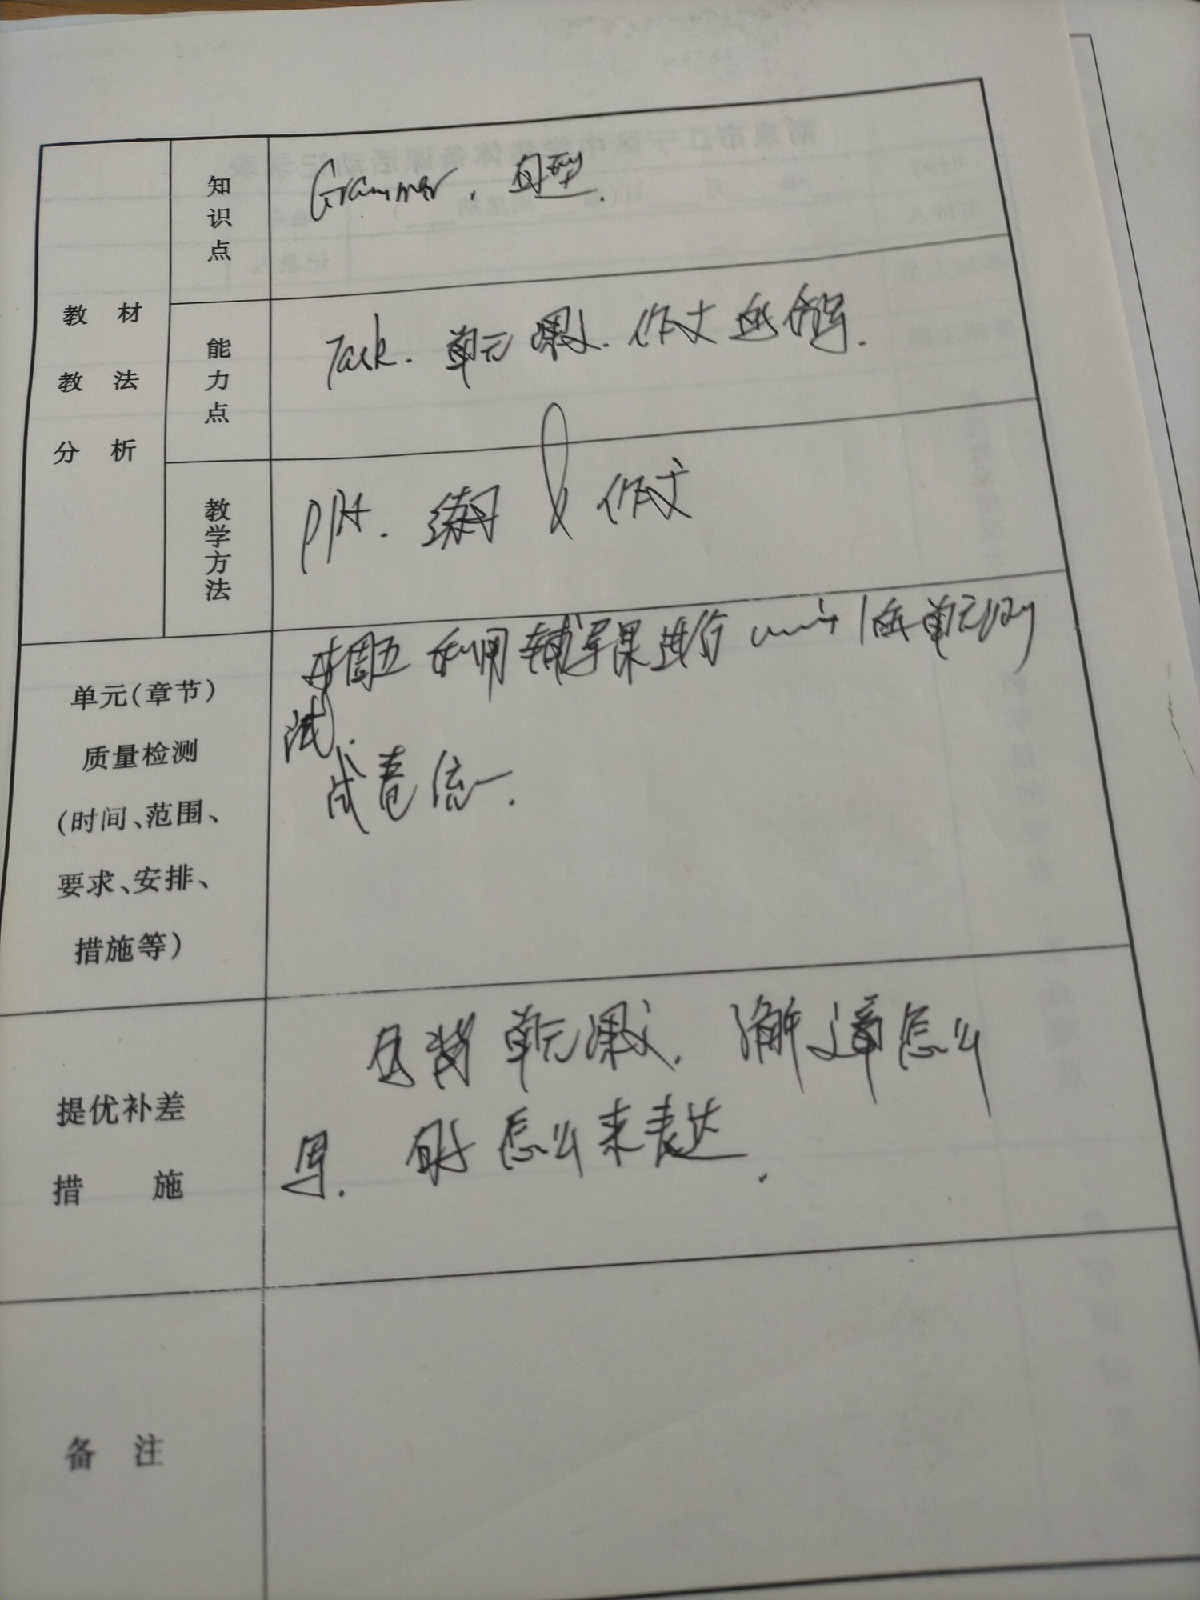 知识点
Grammar. 句型.
教材
教法
分析
能力点
Task. 单元课文. 作文
教学方法
PPt. 练习 作文
单元(章节)
质量检测
(时间、范围、
要求、安排、
措施等)
本周五利用辅导课进行 unit 1 单元
试.
试卷统一.
提优补差
措施
单元课文. 文章怎么
写. 怎么来表达.
备注